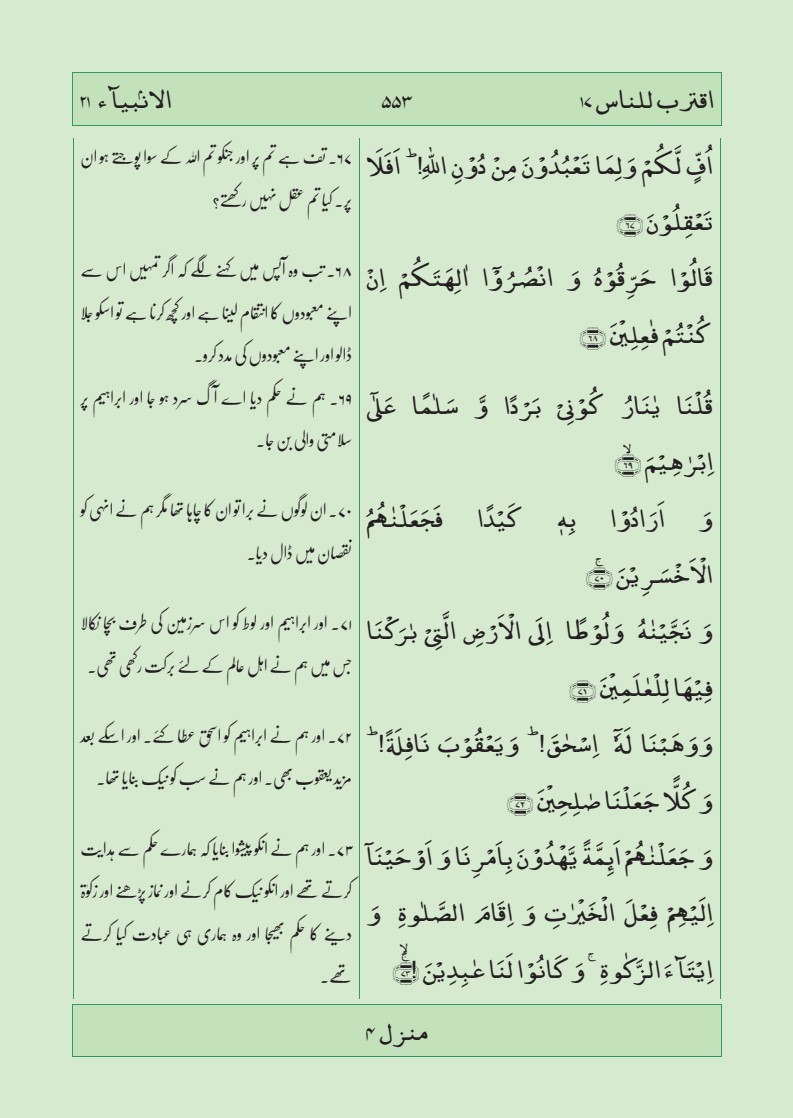 اقترب للناس ۱۷
۵۵۳
الانبیآء ۲۱
اُفٍّ لَّكُمْ وَلِمَا تَعْبُدُوْنَ مِنْ دُوْنِ اللّٰهِ! ؕ اَفَلَا
تَعْقِلُوْنَ ﴿۶۷﴾
قَالُوْا حَرِّقُوْهُ وَ انْصُرُوْۤا اٰلِهَتَكُمْ اِنْ
كُنْتُمْ فٰعِلِيْنَ ﴿۶۸﴾
قُلْنَا يٰنَارُ كُوْنِيْ بَرْدًا وَّ سَلٰمًا عَلٰۤى
اِبْرٰهِيْمَ ۙ﴿۶۹﴾
وَ اَرَادُوْا بِهٖ كَيْدًا فَجَعَلْنٰهُمُ
الْاَخْسَرِيْنَ ۚ﴿۷۰﴾
وَ نَجَّيْنٰهُ وَلُوْطًا اِلَى الْاَرْضِ الَّتِيْ بٰرَكْنَا
فِيْهَا لِلْعٰلَمِيْنَ ﴿۷۱﴾
وَوَهَبْنَا لَهٗۤ اِسْحٰقَ! ؕ وَيَعْقُوْبَ نَافِلَةً! ؕ
وَ كُلًّا جَعَلْنَا صٰلِحِيْنَ ﴿۷۲﴾
وَ جَعَلْنٰهُمْ اَئِمَّةً يَّهْدُوْنَ بِاَمْرِنَا وَ اَوْحَيْنَاۤ
اِلَيْهِمْ فِعْلَ الْخَيْرٰتِ وَ اِقَامَ الصَّلٰوةِ وَ
اِيْتَآءَ الزَّكٰوةِ ۚ وَ كَانُوْا لَنَا عٰبِدِيْنَ! ۙ﴿۷۳﴾
۶۷۔ تف ہے تم پر اور جنکو تم اللہ کے سوا پوجتے ہو ان
پر۔ کیا تم عقل نہیں رکھتے؟
۶۸۔ تب وہ آپس میں کہنے لگے کہ اگر تمہیں اس سے
اپنے معبودوں کا انتقام لینا ہے اور کچھ کرنا ہے تو اسکو جلا
ڈالو اور اپنے معبودوں کی مدد کرو۔
۶۹۔ ہم نے حکم دیا اے آگ سرد ہو جا اور ابراہیم پر
سلامتی والی بن جا۔
۷۰۔ ان لوگوں نے برا تو ان کا چاہا تھا مگر ہم نے انہی کو
نقصان میں ڈال دیا۔
۷۱۔ اور ابراہیم اور لوط کو اس سرزمین کی طرف بچا نکالا
جس میں ہم نے اہل عالم کے لئے برکت رکھی تھی۔
۷۲۔ اور ہم نے ابراہیم کو اسحٰق عطا کئے۔ اور اسکے بعد
مزید یعقوب بھی۔ اور ہم نے سب کو نیک بنایا تھا۔
۷۳۔ اور ہم نے انکو پیشوا بنایا کہ ہمارے حکم سے ہدایت
کرتے تھے اور انکو نیک کام کرنے اور نماز پڑھنے اور زکوٰۃ
دینے کا حکم بھیجا اور وہ ہماری ہی عبادت کیا کرتے
تھے۔
منزل ۴